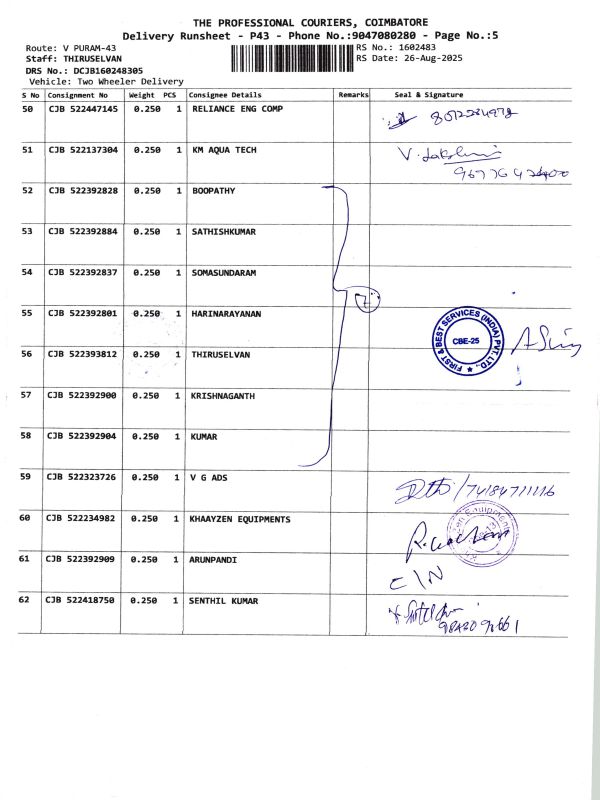 THE PROFESSIONAL COURIERS, COIMBATORE
Delivery Runsheet - P43 - Phone No.:9047080280 - Page No.:5
Route: V PURAM-43 RS No.: 1602483
Staff: THIRUSELVAN RS Date: 26-Aug-2025
DRS No.: DCJB160248305
Vehicle: Two Wheeler Delivery
S No Consignment No Weight PCS Consignee Details Remarks Seal & Signature
50 CJB 522447145 0.250 1 RELIANCE ENG COMP
51 CJB 522137304 0.250 1 KM AQUA TECH
52 CJB 522392828 0.250 1 BOOPATHY
53 CJB 522392884 0.250 1 SATHISHKUMAR
54 CJB 522392837 0.250 1 SOMASUNDARAM
7
55 CJB 522392801 0.250 1 HARINARAYANAN
FIRST & BEST SERVICES (INDIA) PVT. LTD.,
CBE-25
56 CJB 522393812 0.250 1 THIRUSELVAN
57 CJB 522392900 0.250 1 KRISHNAGANTH
58 CJB 522392904 0.250 1 KUMAR
59 CJB 522323726 0.250 1 V G ADS
60 CJB 522234982 0.250 1 KHAAYZEN EQUIPMENTS
61 CJB 522392909 0.250 1 ARUNPANDI
C/N
62 CJB 522418750 0.250 1 SENTHIL KUMAR